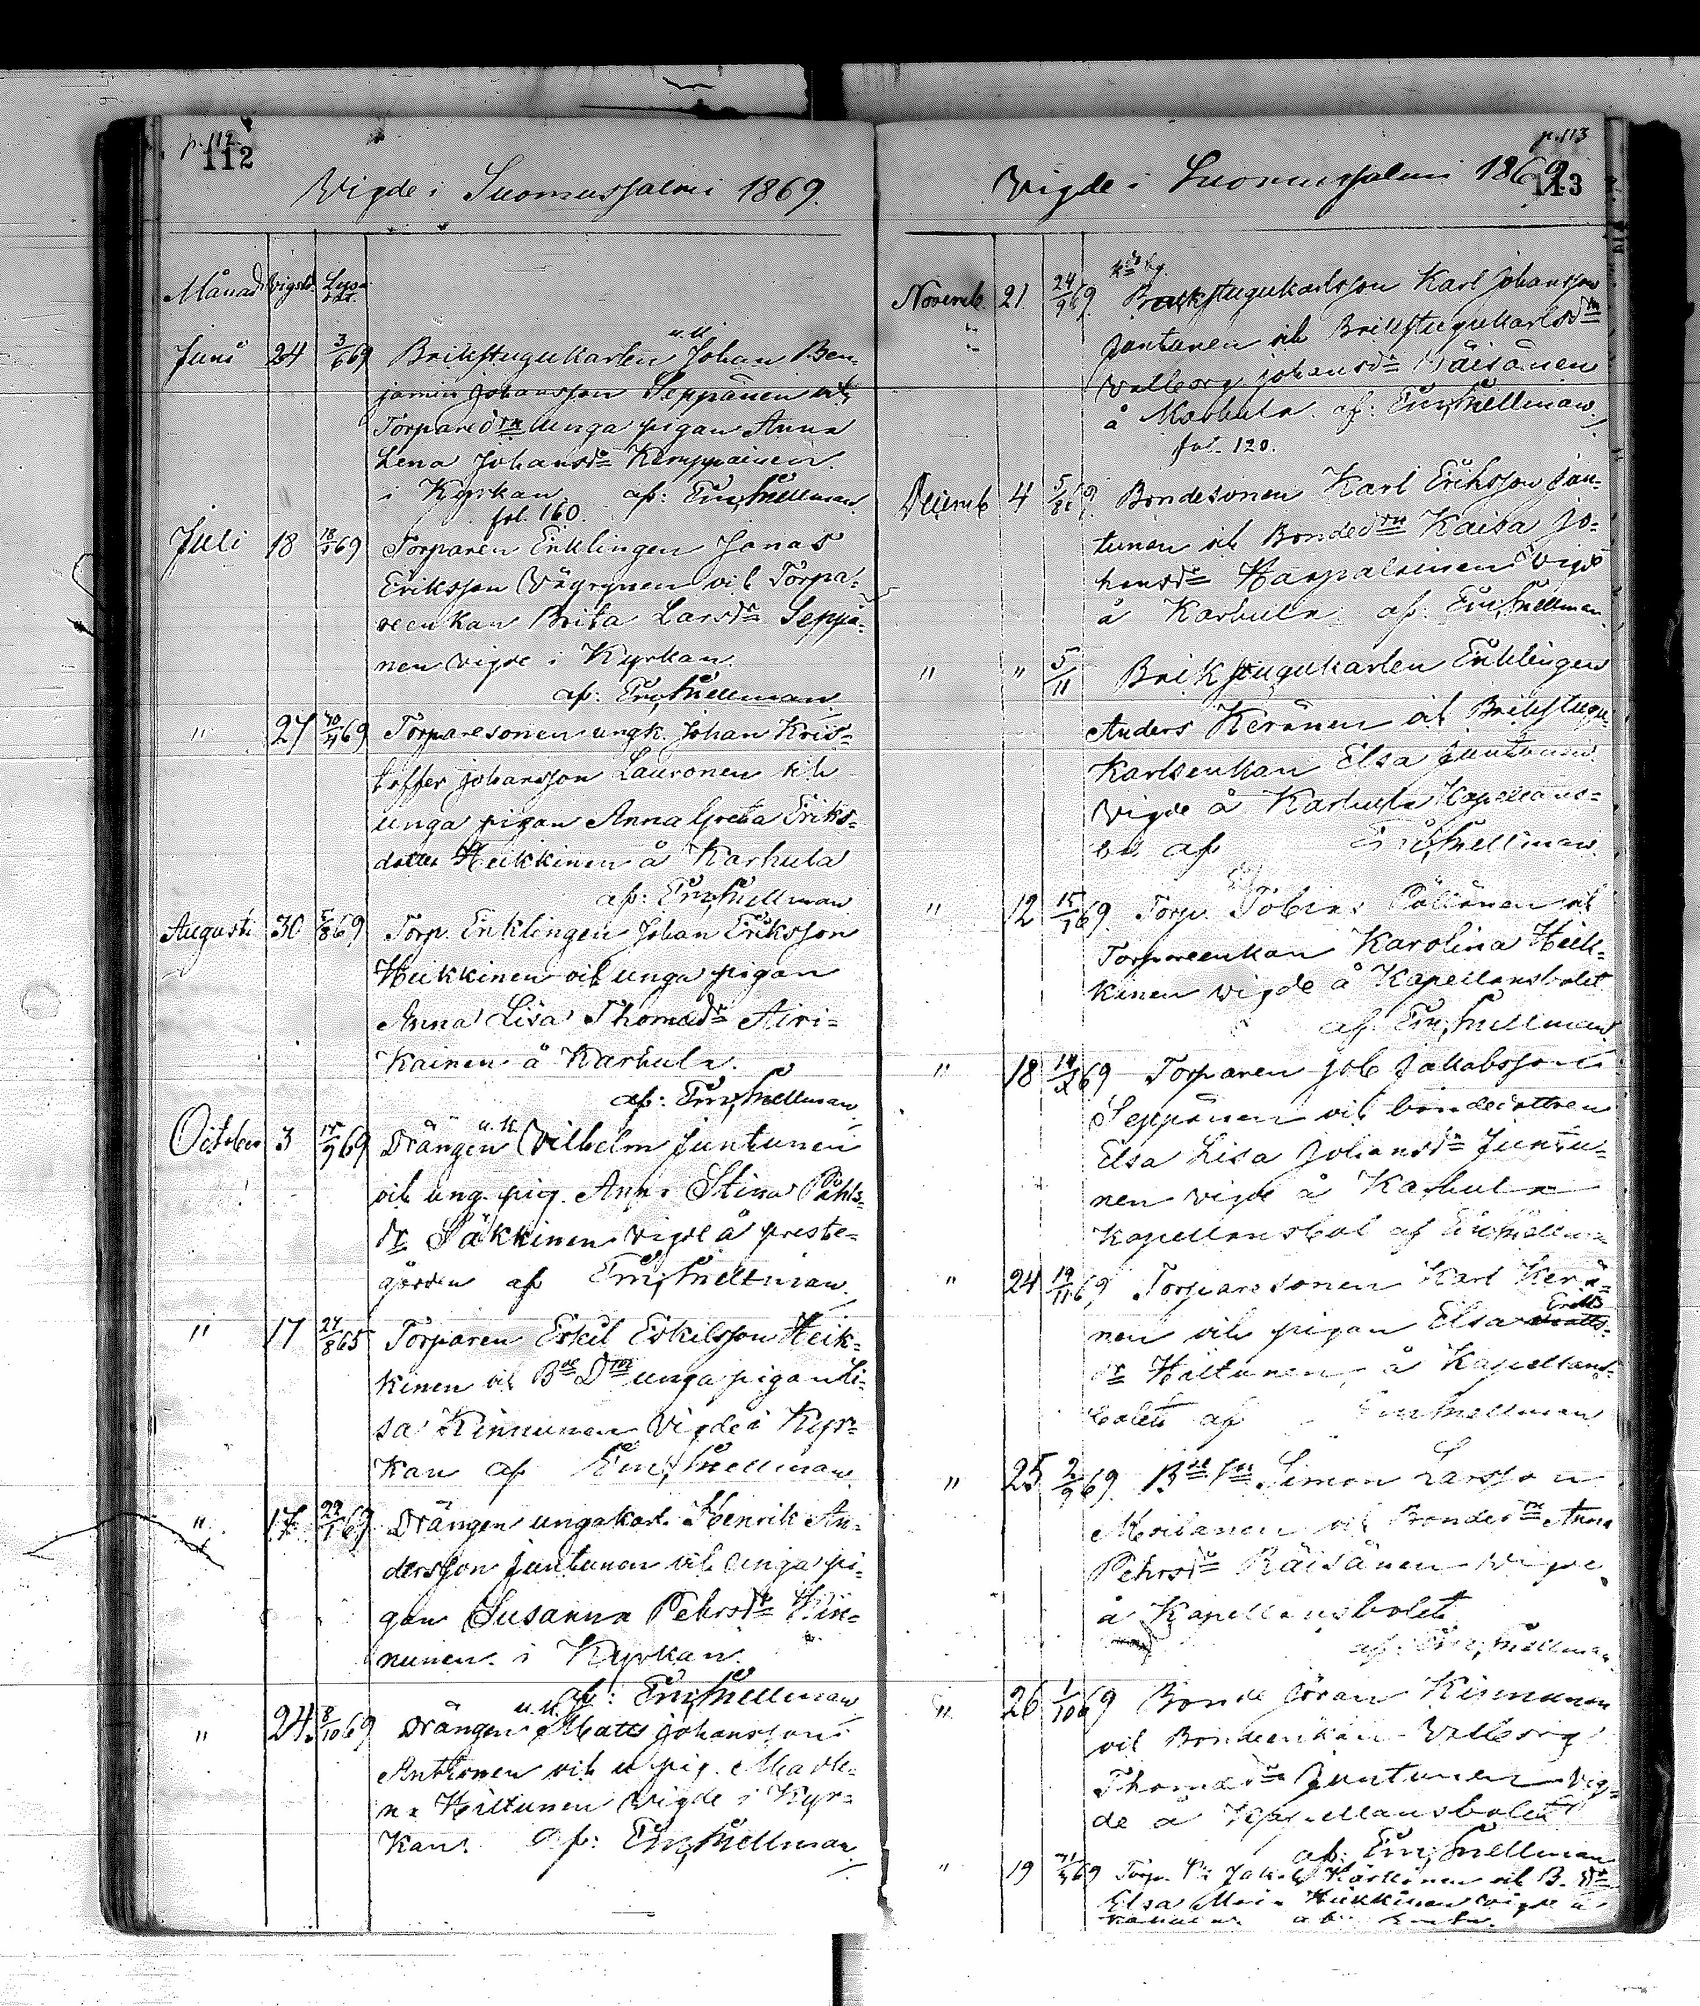 p. 112
112
Vigde i Suomussalmi 1869.
Månad Vigsld. Lysn.
Juni 24 3/6 69 Brikstugukarlen u.k. Johan Ben-
jamin Johansson Seppänen vib
Torpared:rn unga pigan Anna
Lena Johansdr Kemppainen
i Kyrkan af: Em. Snellman
fol. 160.
Juli 18 69 Torparen Enklingen Jonas
Eriksson Väyrynen vib Torpa-
reenkan Brita Larsdr Seppä-
nen vigde i Kyrkan.
af: Em. Snellman
" 27 69 Torparesonen ungk. Johan Kris-
toffer Johansson Lauronen vib
unga pigan Anna Greta Eriks-
dotter Heikkinen å Karhula
af: Em. Snellman
Augusti 30 5/8 69 Torp. Enklingen Johan Eriksson
Heikkinen vib unga pigan
Anna Lisa Thomædr Airi-
kainen å Karhula.
af: Em. Snellman
October 3 69 Drängen u.k. Vilhelm Juntunen
vib ung. pig. Anna Stina Påhls-
dr Säkkinen vigde å preste-
gården af Em. Snellman
" 17 65 Torparen Eskil Eskilsson Heik-
kinen vib Bde Dttr unga pigan Li-
sa Kinnunen Vigde i Kyr-
kan af Em. Snellman
" 17 69 Drängen ungakarl. Henrik An-
dersson Juntunen vib unga pi-
gan Susanna Pehrsdr Kin-
nunen i Kyrkan.
af: Em. Snellman
" 24. 8/10 69 Drängen u.k. Matts Johansson
Anttonen vib u pig. Marle-
na Hiltunen Vigde i Kyr-
kan. af: Em. Snellman
p. 113
113
Vigde i Suomussalmi 1869.
Novemb. 21. 24/9 69. Brikstugukarlsson Karl Johansson
Juntunen vib Brikstugukarlsdrn
Valborg Johansdr Räisänen
å Karhula af: Em. Snellman
fol. 120.
Decemb 4 69. Bondesonen Karl Eriksson Jun-
tunen vib Bondedrn Kaisa Jo-
hansdr Haapalainen Vigde
å Karhula af: Em. Snellman
" " 5/11 Brikstugukarlen Enklingen
Anders Keränen vib Brikstugu-
Karlsenkan Elsa Juntunen
Vigde å Karhula Kapellans-
bol af Em. Snellman
" 12 69. Torp. Tobias Pöllänen vib
Torpareenkan Karolina Heik-
kinen vigde å Kapellansbolet
af: Em. Snellman
" 18 69 Torparen Job Jakobsson
Seppänen vib bondedottren
Elsa Lisa Johansdr Juntu-
nen vigde å Karhula
Kapellansbol af Em. Snellman
" 24 19/11 69 Torparesonen Karl Kerä-
nen vib pigan Elsa Eriks-
dr Hiltunen å Kapellans-
bolet af Em. Snellman
" 25 2/9 69. Bde Sn Simon Larsson
Moilanen vib Bondedrn Anna
Pehrsdr Räisänen vigde
å Kapellansbolet
af: Em. Snellman
" 26 1/10 69 Bonde Göran Kinnunen
vib Bondeenkan Valborg
Thomædr Juntunen Vig-
de å Kapellansbolet
af: Em. Snellman
" 19 69 Torp. Jakob vib B. Dr
Elsa Maria Heikkinen vigde å